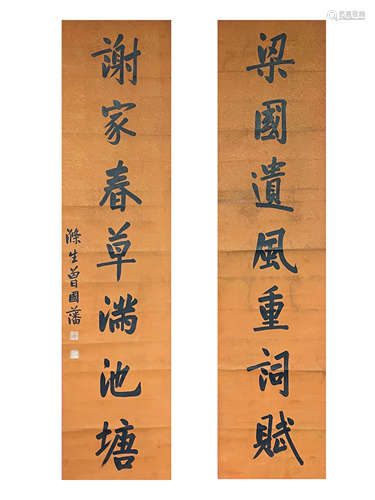 梁國遺風重詞賦
謝家春草満池塘
滌生曾國藩